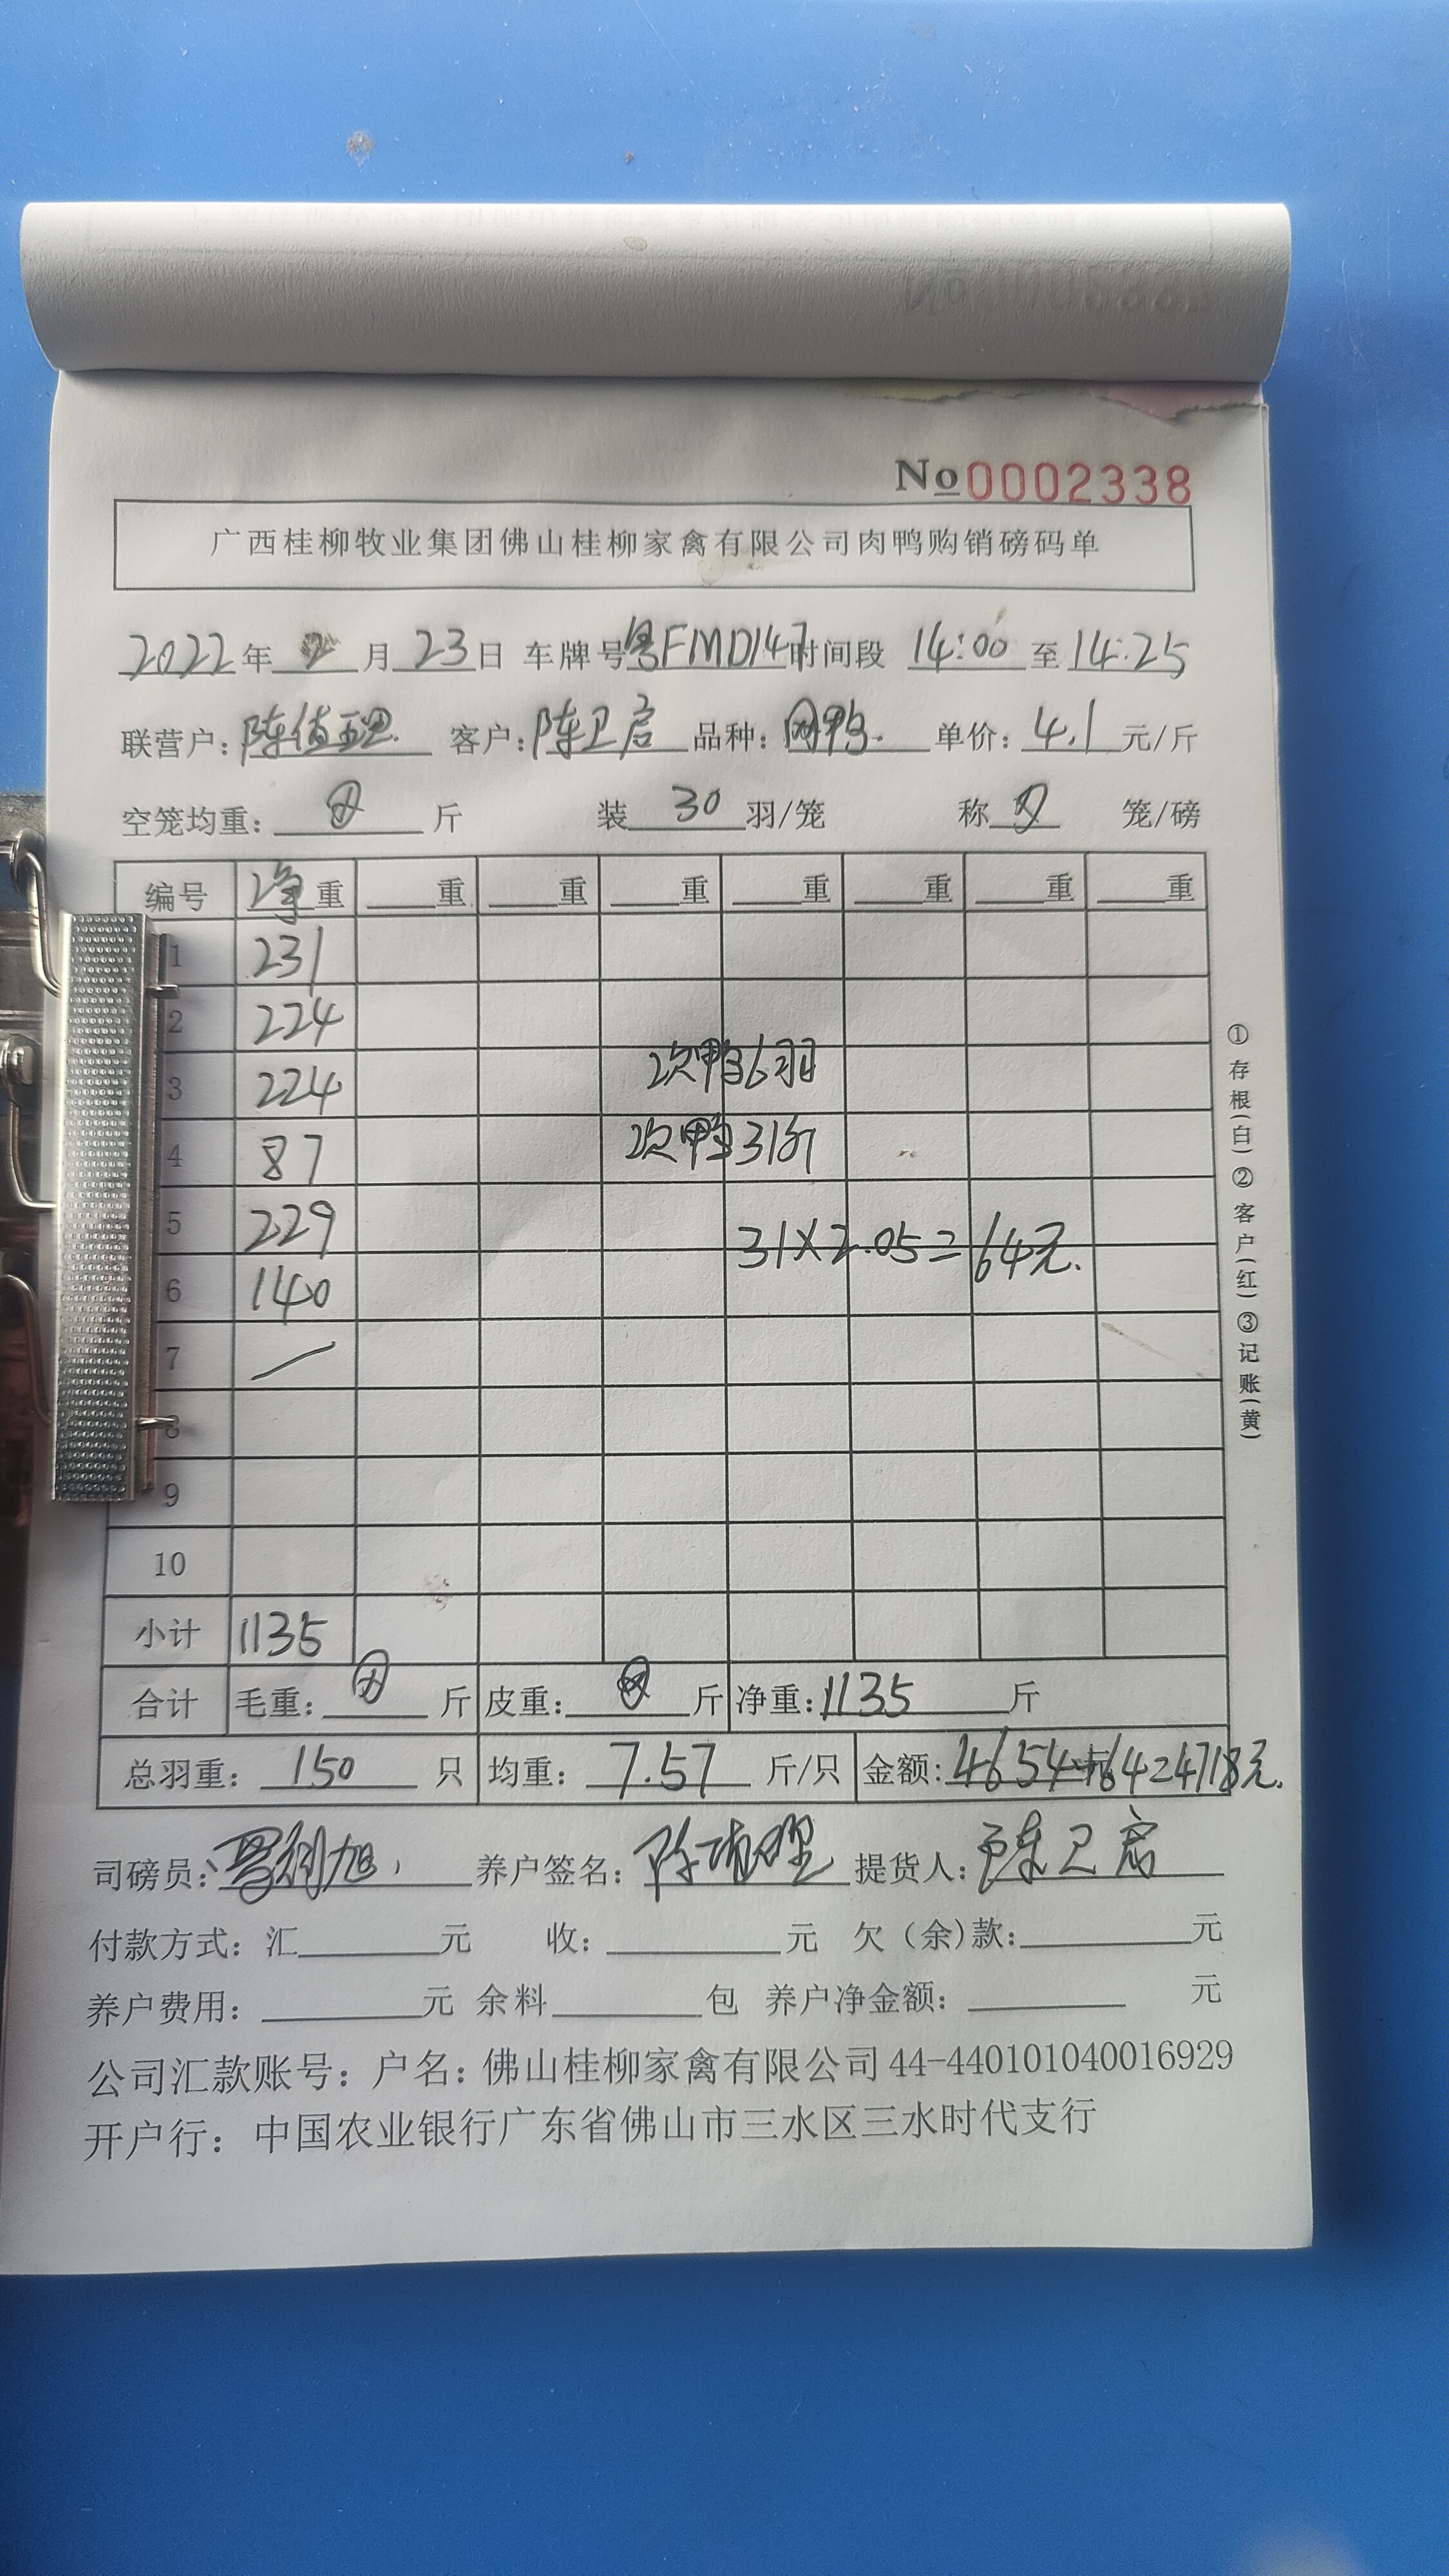 No 0002338
广西桂柳牧业集团佛山桂柳家禽有限公司肉鸭购销磅码单
2022年 2月 23日 车牌号 粤FMD147 时间段 14:00 至 14:25
联营户: 陈 客户: 陈卫启 品种: 鸭. 单价: 4.1 元/斤
空笼均重: 斤 装 30 羽/笼 称 笼/磅
编号 净重 重 重 重 重 重 重 重
1 231
2 224
3 224 次鸭6羽
4 87 次鸭31斤
5 229
31×2.05=64元.
6 140
7 /
8
9
10
小计 1135
合计 毛重: 斤 皮重: 斤 净重: 1135 斤
总羽重: 150 只 均重: 7.57 斤/只 金额: 4654+64=4718元.
司磅员: 养户签名: 陈 提货人: 陈卫启
付款方式: 汇 元 收: 元 欠(余)款: 元
养户费用: 元 余料 包 养户净金额: 元
公司汇款账号: 户名: 佛山桂柳家禽有限公司 44-440101040016929
开户行: 中国农业银行广东省佛山市三水区三水时代支行
①存根(白)②客户(红)③记账(黄)